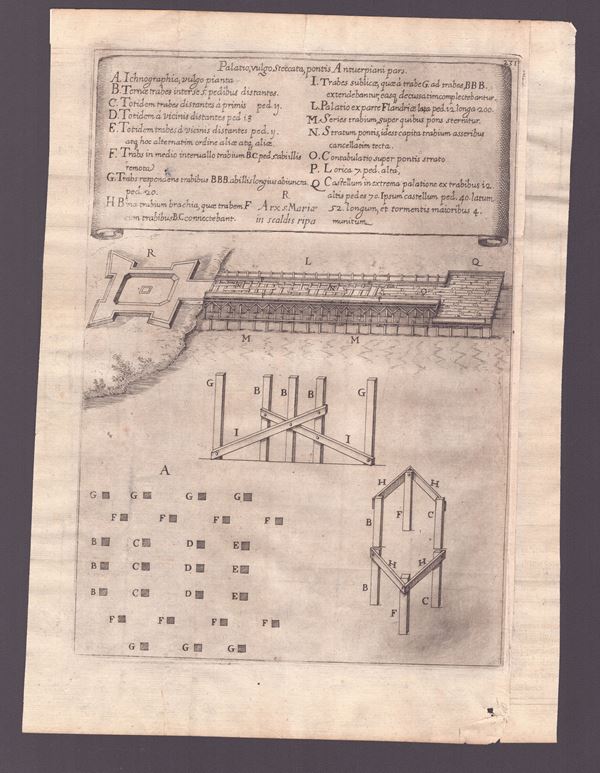 Palatio, vulgo Steccata, pontis Antuerpiani pars.
A. Ichnographia, vulgo pianta.
B. Ternæ trabes inter se 5. pedibus distantes.
C. Totidem trabes distantes à primis ped. 4.
D. Totidem à vicinis distantes ped 18
E. Totidem trabes à vicinis distantes ped. 4.
atq hoc alternatim ordine aliæ atq aliæ.
F. Trabs in medio interuallo trabium B.C. ped. 5. ab illis
remota.
G. Trabs respondens trabibus BBB. ab illis longius abiuncta
ped. 20.
H Bina trabium brachia, quæ trabem F
cum trabibus B.C. connectebant.
R
Arx S. Mariæ
in scaldis ripa
I. Trabes sublicæ, quæ à trabe G. ad trabes BBB.
extendebantur, easq decussatim complectebantur.
L. Palatio ex parte Flandriæ lata ped. 12. longa 200.
M. Series trabium super quibus pons sternitur.
N. Stratum pontis, idest capita trabium asseribus
cancellatim tecta.
O. Contabulatio super pontis strato
P. Lorica 7. ped. alta,
Q Castellum in extrema palatione ex trabibus 12.
altis pedes 70. Ipsum castellum ped. 40. latum
52. longum, et tormentis maioribus 4.
munitum.
R L Q
N O
M M
G B B B G
I I
A
G G G G
F F F F
B C D E
B C D E
B C D E
F F F F
G G G
H H
B F C
H H
B F C